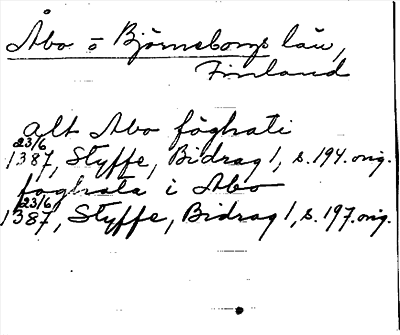 Åbo o Björneborgs län,
Finland
alt Abo föghati
23/6
1387, Styffe, Bidrag 1, s. 194. orig.
foghata i Abo
23/6
1387, Styffe, Bidrag 1, s. 197. orig.